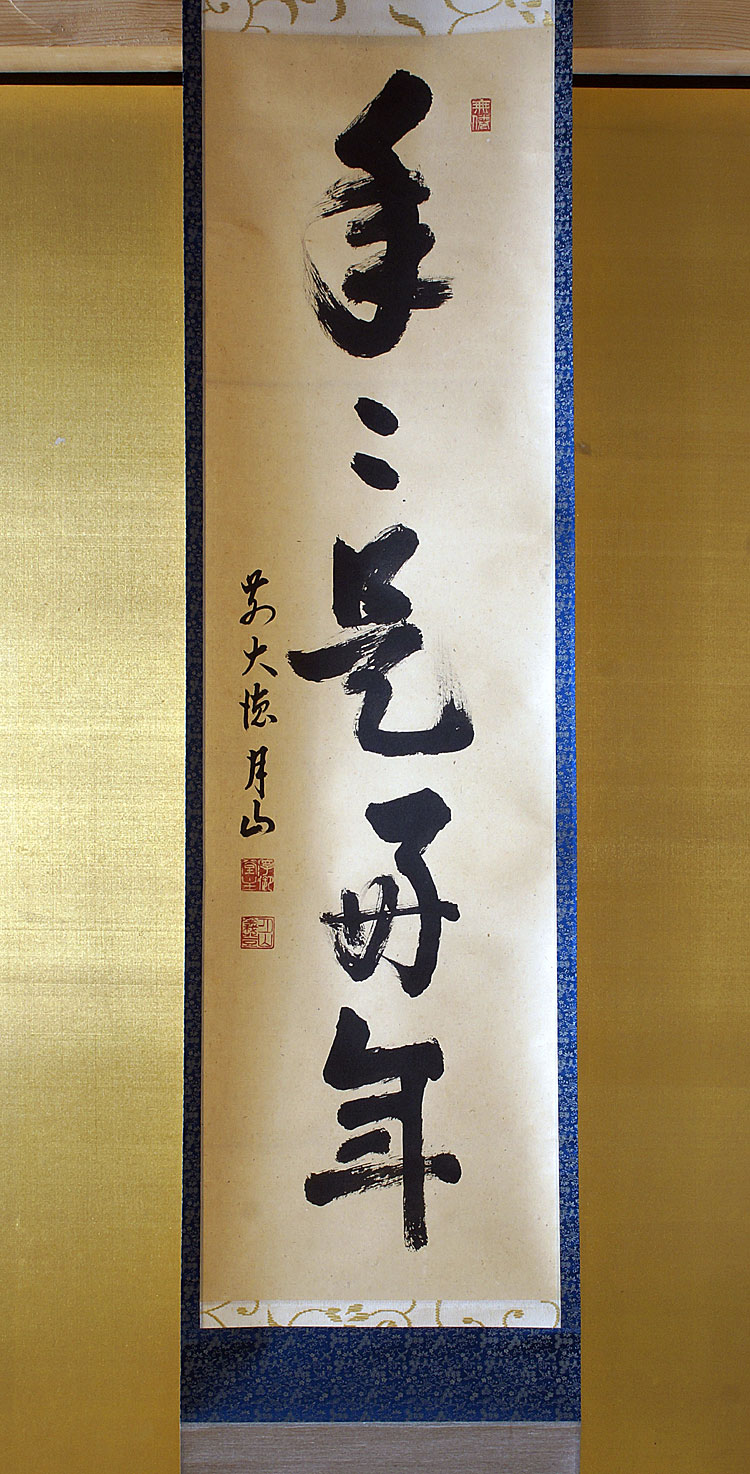 年〻是好年
前大徳月山